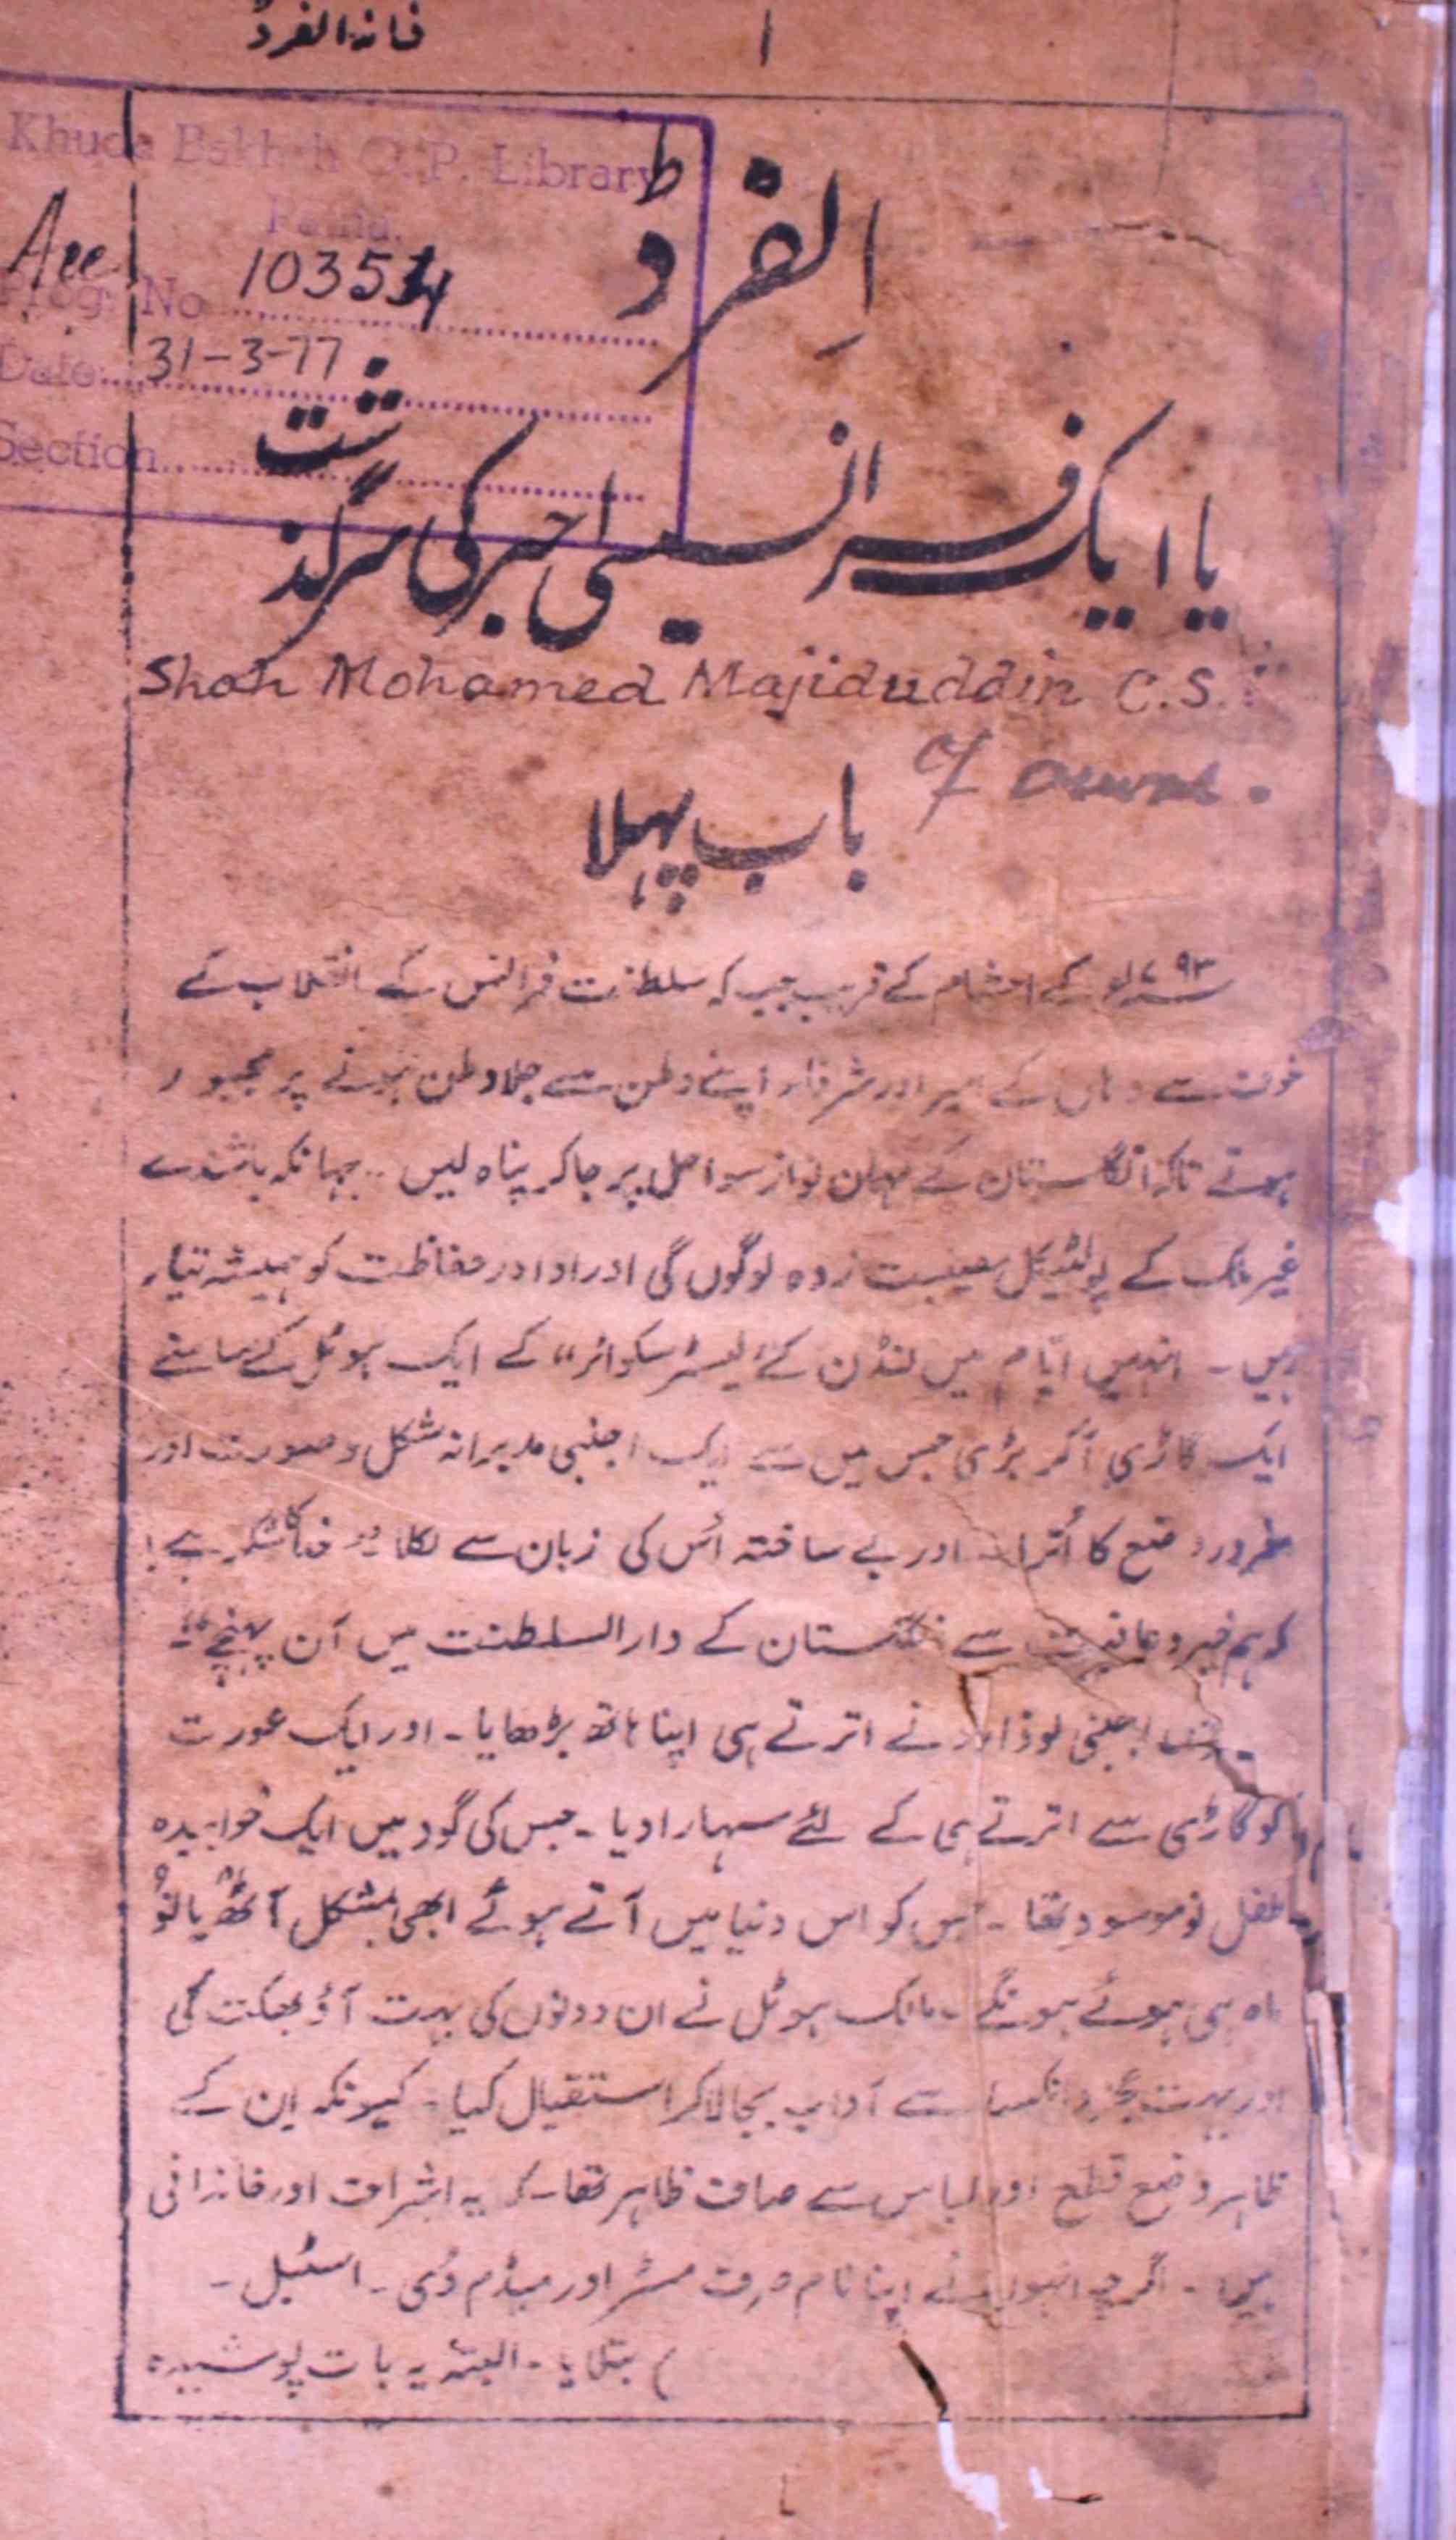 ۱
فسانہ الفرڈ
Khuda Bakhsh O. P. Library
Patna.
Acc
Prog. No 103534
Date: 31-3-77
Section
الفرڈ
یا ایک فرانسیسی اجیر کی سرگذشت
Shah Mohamed Majiduddin C.S.
of
باب پہلا
۱۷۹۳ء کے اختتام کے قریب جب کہ سلطنت فرانس کے انقلاب کے
خوف سے وہاں کے امیر اور شرفاء اپنے وطن سے جلاوطن ہونے پر مجبور
ہوتے تاکہ انگلستان کے مہمان نواز سواحل پر جاکر پناہ لیں ۔ جہانکہ باشندے
غیر ملک کے پولٹیکل مصیبت زدہ لوگوں کی امداد اور حفاظت کو ہمیشہ تیار
ہیں ۔ انہیں ایام میں لنڈن کے "لیسٹر سکوائر" کے ایک ہوٹل کے سامنے
ایک گاڑی آکر بڑی جس میں سے ایک اجنبی مدبرانہ شکل و صورت اور
وضع کا اُترا ۔ اور بے ساختہ اُس کی زبان سے نکلا "خدا کا شکر ہے!
کہ ہم خیر و عافیت سے انگلستان کے دار السلطنت میں آن پہنچے"۔
اجنبی نووارد نے اترتے ہی اپنا ہاتھ بڑھایا ۔ اور ایک عورت
کو گاڑی سے اترتے ہی کے لئے سہارا دیا ۔ جس کی گود میں ایک خوابیدہ
طفل نومسود تھا ۔ جس کو اس دنیا میں آتے ہوئے ابھی بمشکل آٹھ یا نو
ماہ ہی ہوئے ہونگے ۔ مالک ہوٹل نے ان دونوں کی بہت آؤ بھگت کی
اور بہت عجز و انکسار سے آداب بجالاکر استقبال کیا ۔ کیونکہ ان کے
ظاہر وضع قطع اور لباس سے صاف ظاہر تھا ۔ کہ یہ اشراف اور خاندانی
ہیں ۔ اگرچہ انہوں نے اپنا نام صرف مسٹر اور میڈم ڈی ۔ اسٹبل ۔
) بتلایا ۔ البتہ یہ بات پوشیدہ